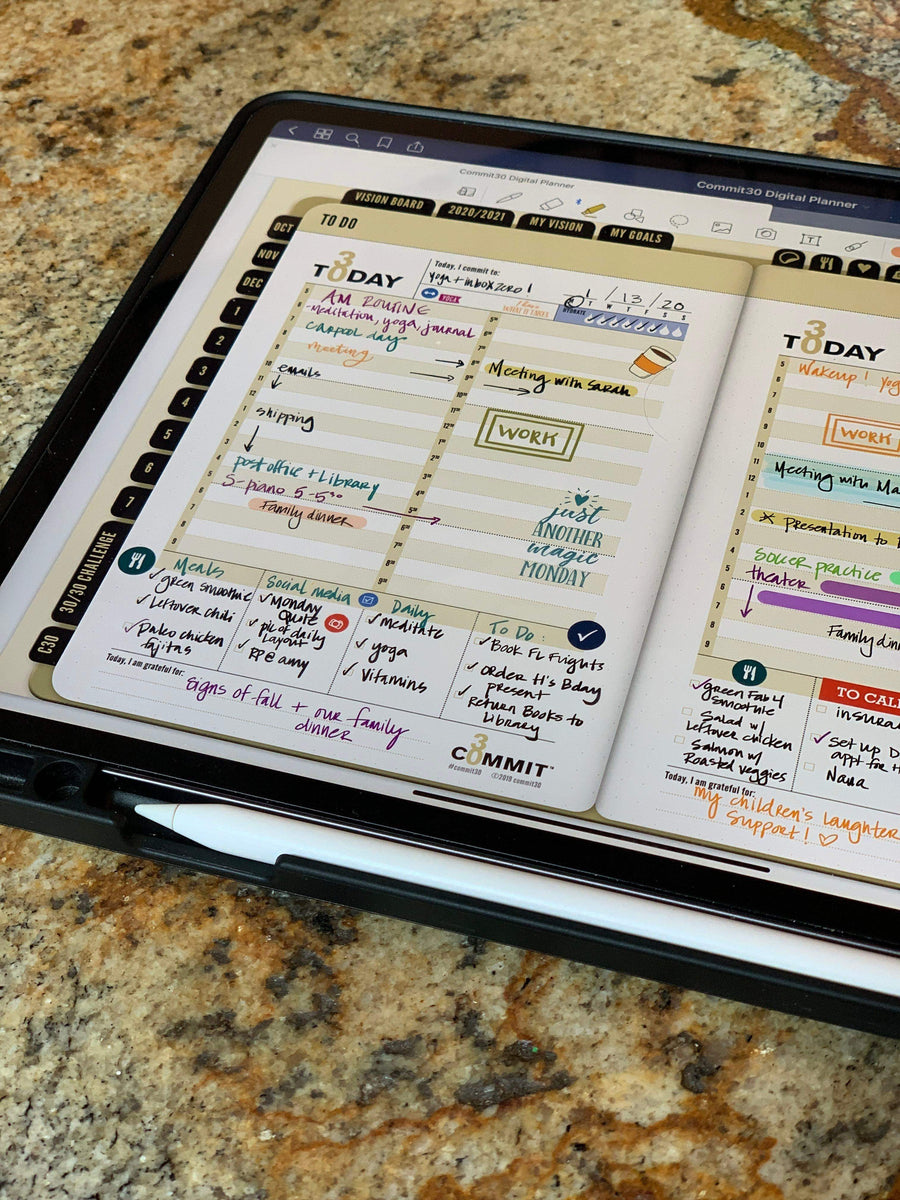 Commit30 Digital Planner
Commit30 Digital Planner
VISION BOARD
2020/2021
MY VISION
MY GOALS
OCT
NOV
DEC
1
2
3
4
5
6
7
30/30 CHALLENGE
C30
TO DO
30
TODAY
Today, I commit to:
yoga + inbox zero!
YOGA
1 / 13 / 20
T W T F S S
HYDRATE
AM ROUTINE
-Meditation, yoga, journal
carpool day
meeting
emails
shipping
post office + Library
S-piano 5-5:30
Family dinner
Meeting with Sarah
WORK
just
ANOTHER
magic
MONDAY
Meals
green smoothie
Leftover chili
Paleo chicken
fajitas
Social media
Monday
Quote
pic of daily
Layout
PPC amy
Daily
meditate
yoga
Vitamins
To Do:
Book FL Flights
Order H's Bday
present
Return Books to
Library
Today, I am grateful for:
Signs of fall + our family
dinner
30
COMMIT™
#commit30 ©2019 commit30
30
TODAY
Wakeup! yog
WORK
Meeting with Ma
* Presentation to
Soccer practice
theater
Family din
green Fab 4
smoothie
Salad w/
Leftover chicken
Salmon w/
Roasted veggies
TO CAL
insura
set up D
appt for H
Nana
Today, I am grateful for:
my children's laughter
Support! ♡